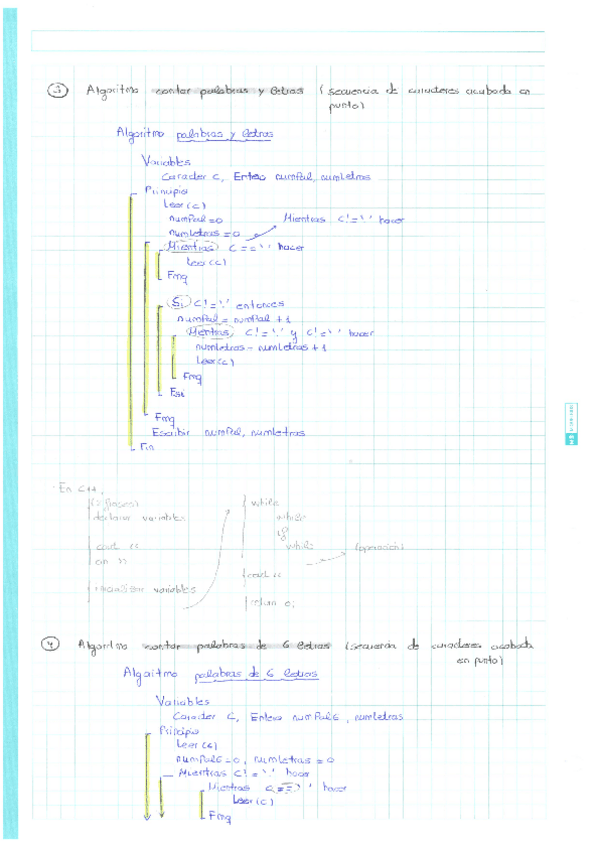 3 Algoritmo contar palabras y letras (secuencia de caracteres acabada en
punto)
Algoritmo palabras y letras
Variables
Caracter C, Entero numPal, numLetras
Principio
Leer(c)
numPal=0
numLetras=0
Mientras C!='.' hacer
Mientras C==' ' hacer
Leer(c)
Fmq
Si C!='.' entonces
numPal=numPal+1
Mientras C!='.' y C!=' ' hacer
numLetras=numLetras+1
Leer(c)
Fmq
Fsi
Fmq
Escribir numPal, numLetras
Fin
En C++,
declarar variables
cout <<
cin >>
inicializar variables
while
while
if
while (operación)
cout <<
return 0;
4 Algoritmo contar palabras de 6 letras (secuencia de caracteres acabada
en punto)
Algoritmo palabras de 6 letras
Variables
Caracter C, Entero numPal6, numLetras
Principio
Leer(c)
numPal6=0, numLetras=0
Mientras C!='.' hacer
Mientras C==' ' hacer
Leer(c)
Fmq